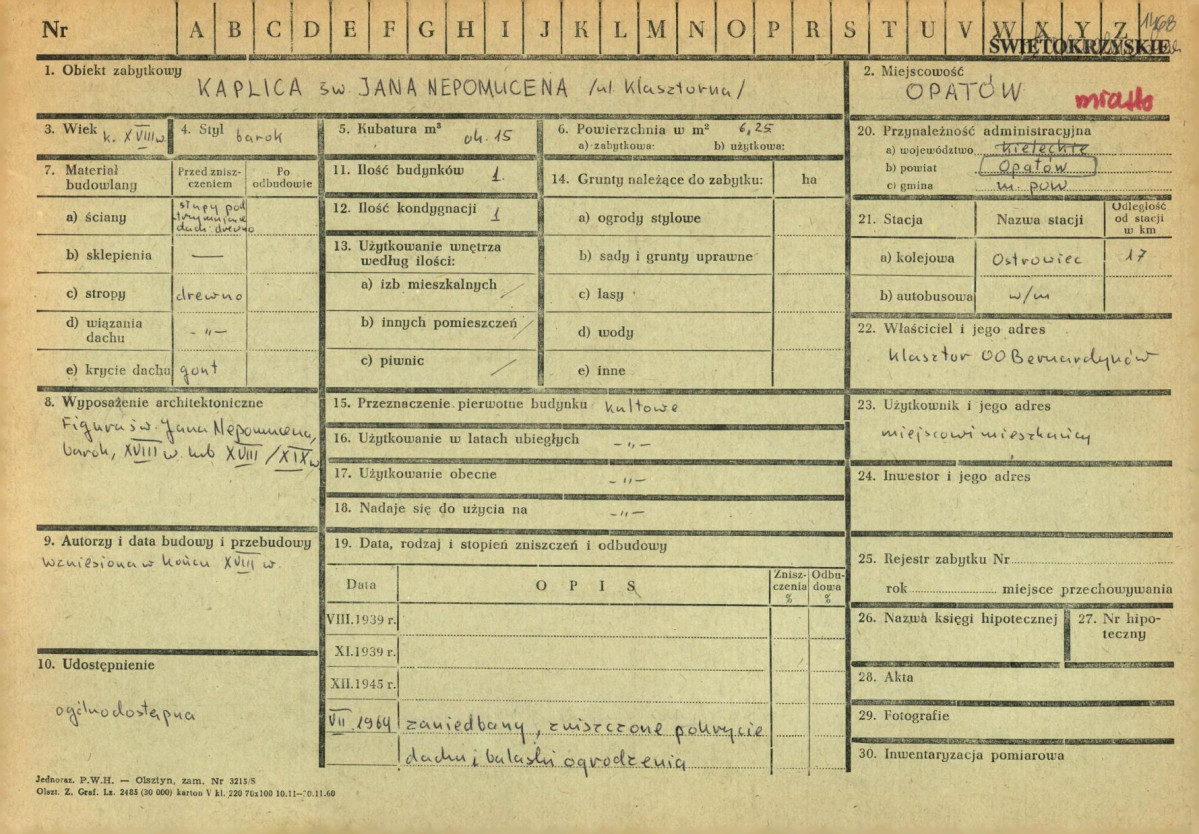 Nr A B C D E F G H I J K L M N O P R S T U V W X Y Z
ŚWIĘTOKRZYSKIE
1. Obiekt zabytkowy
KAPLICA św. JANA NEPOMUCENA /ul. Klasztorna/
2. Miejscowość
OPATÓW
miasto
3. Wiek k. XVIII w.
4. Styl barok
5. Kubatura m³ ok. 15
6. Powierzchnia w m² 6,25
a) zabytkowa: b) użytkowa:
20. Przynależność administracyjna
a) województwo kieleckie
b) powiat Opatów
c) gmina m. pow
7. Materiał budowlany
Przed zniszczeniem
Po odbudowie
a) ściany słupy pod
dach: drewno
b) sklepienia —
c) stropy drewno
d) wiązania dachu - „ -
e) krycie dachu gont
11. Ilość budynków 1
12. Ilość kondygnacji 1
13. Użytkowanie wnętrza według ilości:
a) izb mieszkalnych /
b) innych pomieszczeń /
c) piwnic /
14. Grunty należące do zabytku: ha
a) ogrody stylowe
b) sady i grunty uprawne
c) lasy
d) wody
e) inne
21. Stacja Nazwa stacji Odległość od stacji w km
a) kolejowa Ostrowiec 17
b) autobusowa w/m
22. Właściciel i jego adres
Klasztor OO Bernardynów
8. Wyposażenie architektoniczne
Figura św. Jana Nepomucena,
barok, XVIII w. lub XVIII/XIX w
15. Przeznaczenie pierwotne budynku kultowe
16. Użytkowanie w latach ubiegłych - „ -
17. Użytkowanie obecne - „ -
18. Nadaje się do użycia na - „ -
23. Użytkownik i jego adres
miejscowi mieszkańcy
24. Inwestor i jego adres
9. Autorzy i data budowy i przebudowy
Wzniesiona w końcu XVIII w.
19. Data, rodzaj i stopień zniszczeń i odbudowy
Data OPIS Zniszczenia % Odbudowa %
VIII.1939 r.
XI.1939 r.
XII.1945 r.
VII.1964 zaniedbany, zniszczone pokrycie
dachu i balaski ogrodzenia
25. Rejestr zabytku Nr
rok miejsce przechowywania
26. Nazwa księgi hipotecznej
27. Nr hipoteczny
28. Akta
29. Fotografie
30. Inwentaryzacja pomiarowa
10. Udostępnienie
ogólnodostępna
Jednoraz. P.W.H. — Olsztyn, zam. Nr 3215/S
Olszt. Z. Graf. Lz. 2485 (30 000) karton V kl. 220 70x100 10.11—30.11.60